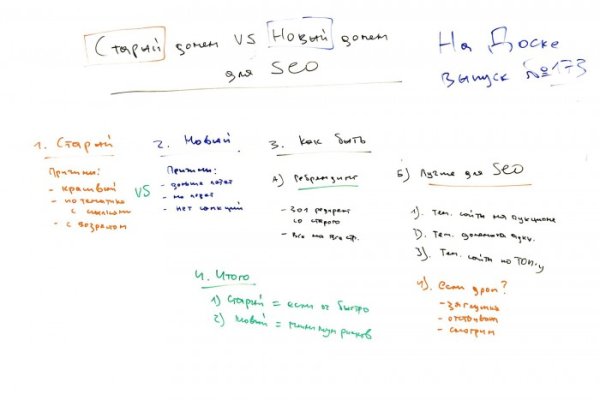 Старый домен VS Новый домен
для SEO
На Доске
Выпуск №173
1. Старый
Причины:
- красивый
- по тематике
с ссылками
- с возрастом
VS
2. Новый
Причины:
- дольше
- на
- нет санкций
3. Как быть
А) Ребрендинг
- 301 редирект
со старого
- Все на все стр.
Б) Лучше для SEO
1). Тем. сайты на аукционе
2). Тем. домена аукц.
3). Тем. сайты по ТОП-у
4). Если дроп?
- заглушка
- отстоять
- смотрим
4. Итого
1) Старый = если ог быстро
2) Новый = минимум рисков